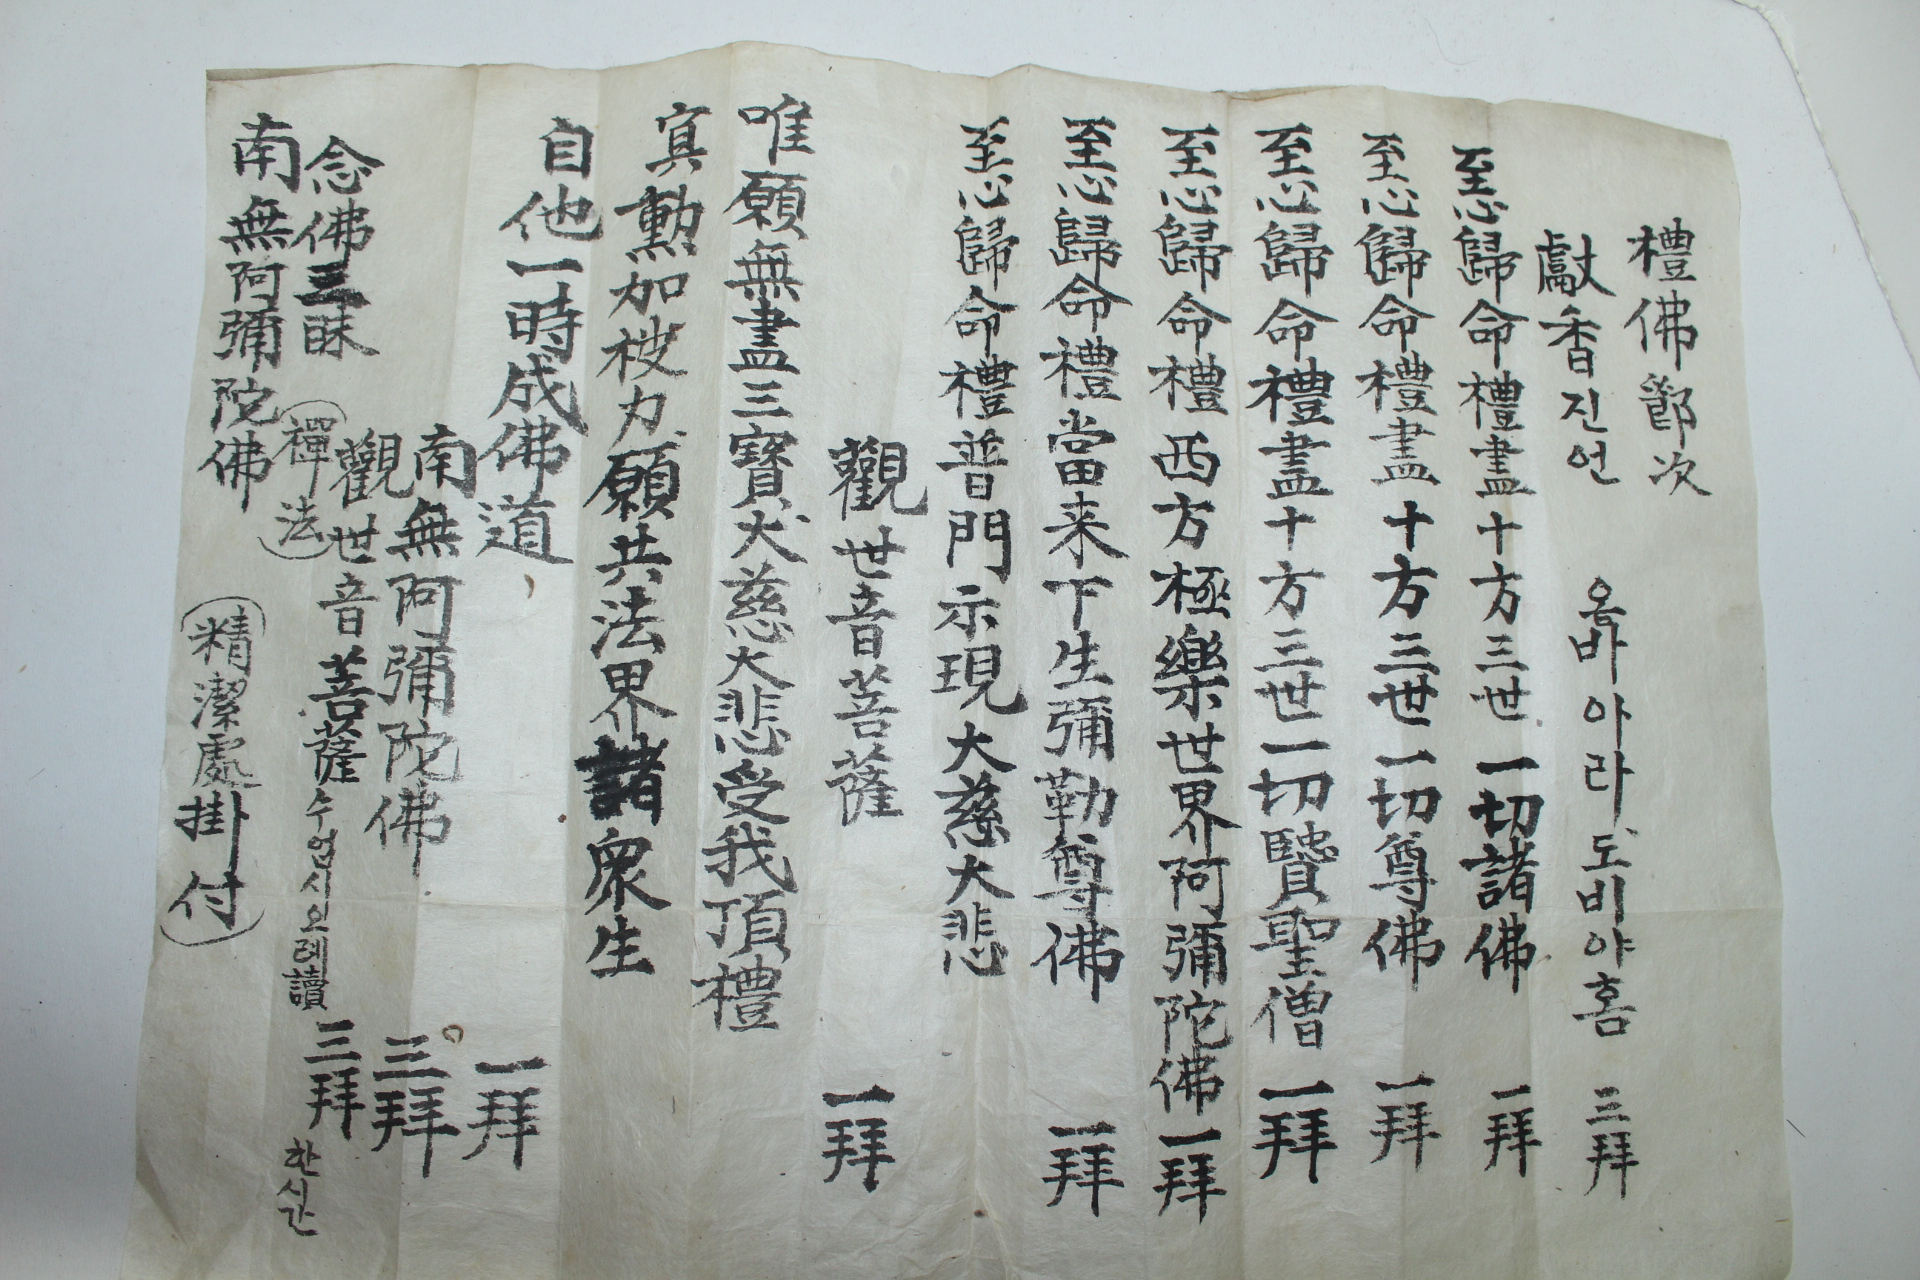 禮佛節次
獻香진언 옴바아라도비야홈 三拜
至心歸命禮盡十方三世一切諸佛 一拜
至心歸命禮盡十方三世一切尊佛 一拜
至心歸命禮盡十方三世一切賢聖僧 一拜
至心歸命禮西方極樂世界阿彌陀佛 一拜
至心歸命禮當来下生彌勒尊佛 一拜
至心歸命禮普門示現大慈大悲
觀世音菩薩 一拜
唯願無盡三寶大慈大悲受我頂禮
冥勳加被力願共法界諸衆生
自他一時成佛道 一拜
南無阿彌陀佛 三拜
觀世音菩薩 수업시오래讀 三拜 한시간
念佛三昧(禪法)
南無阿彌陀佛 (精潔處掛付)